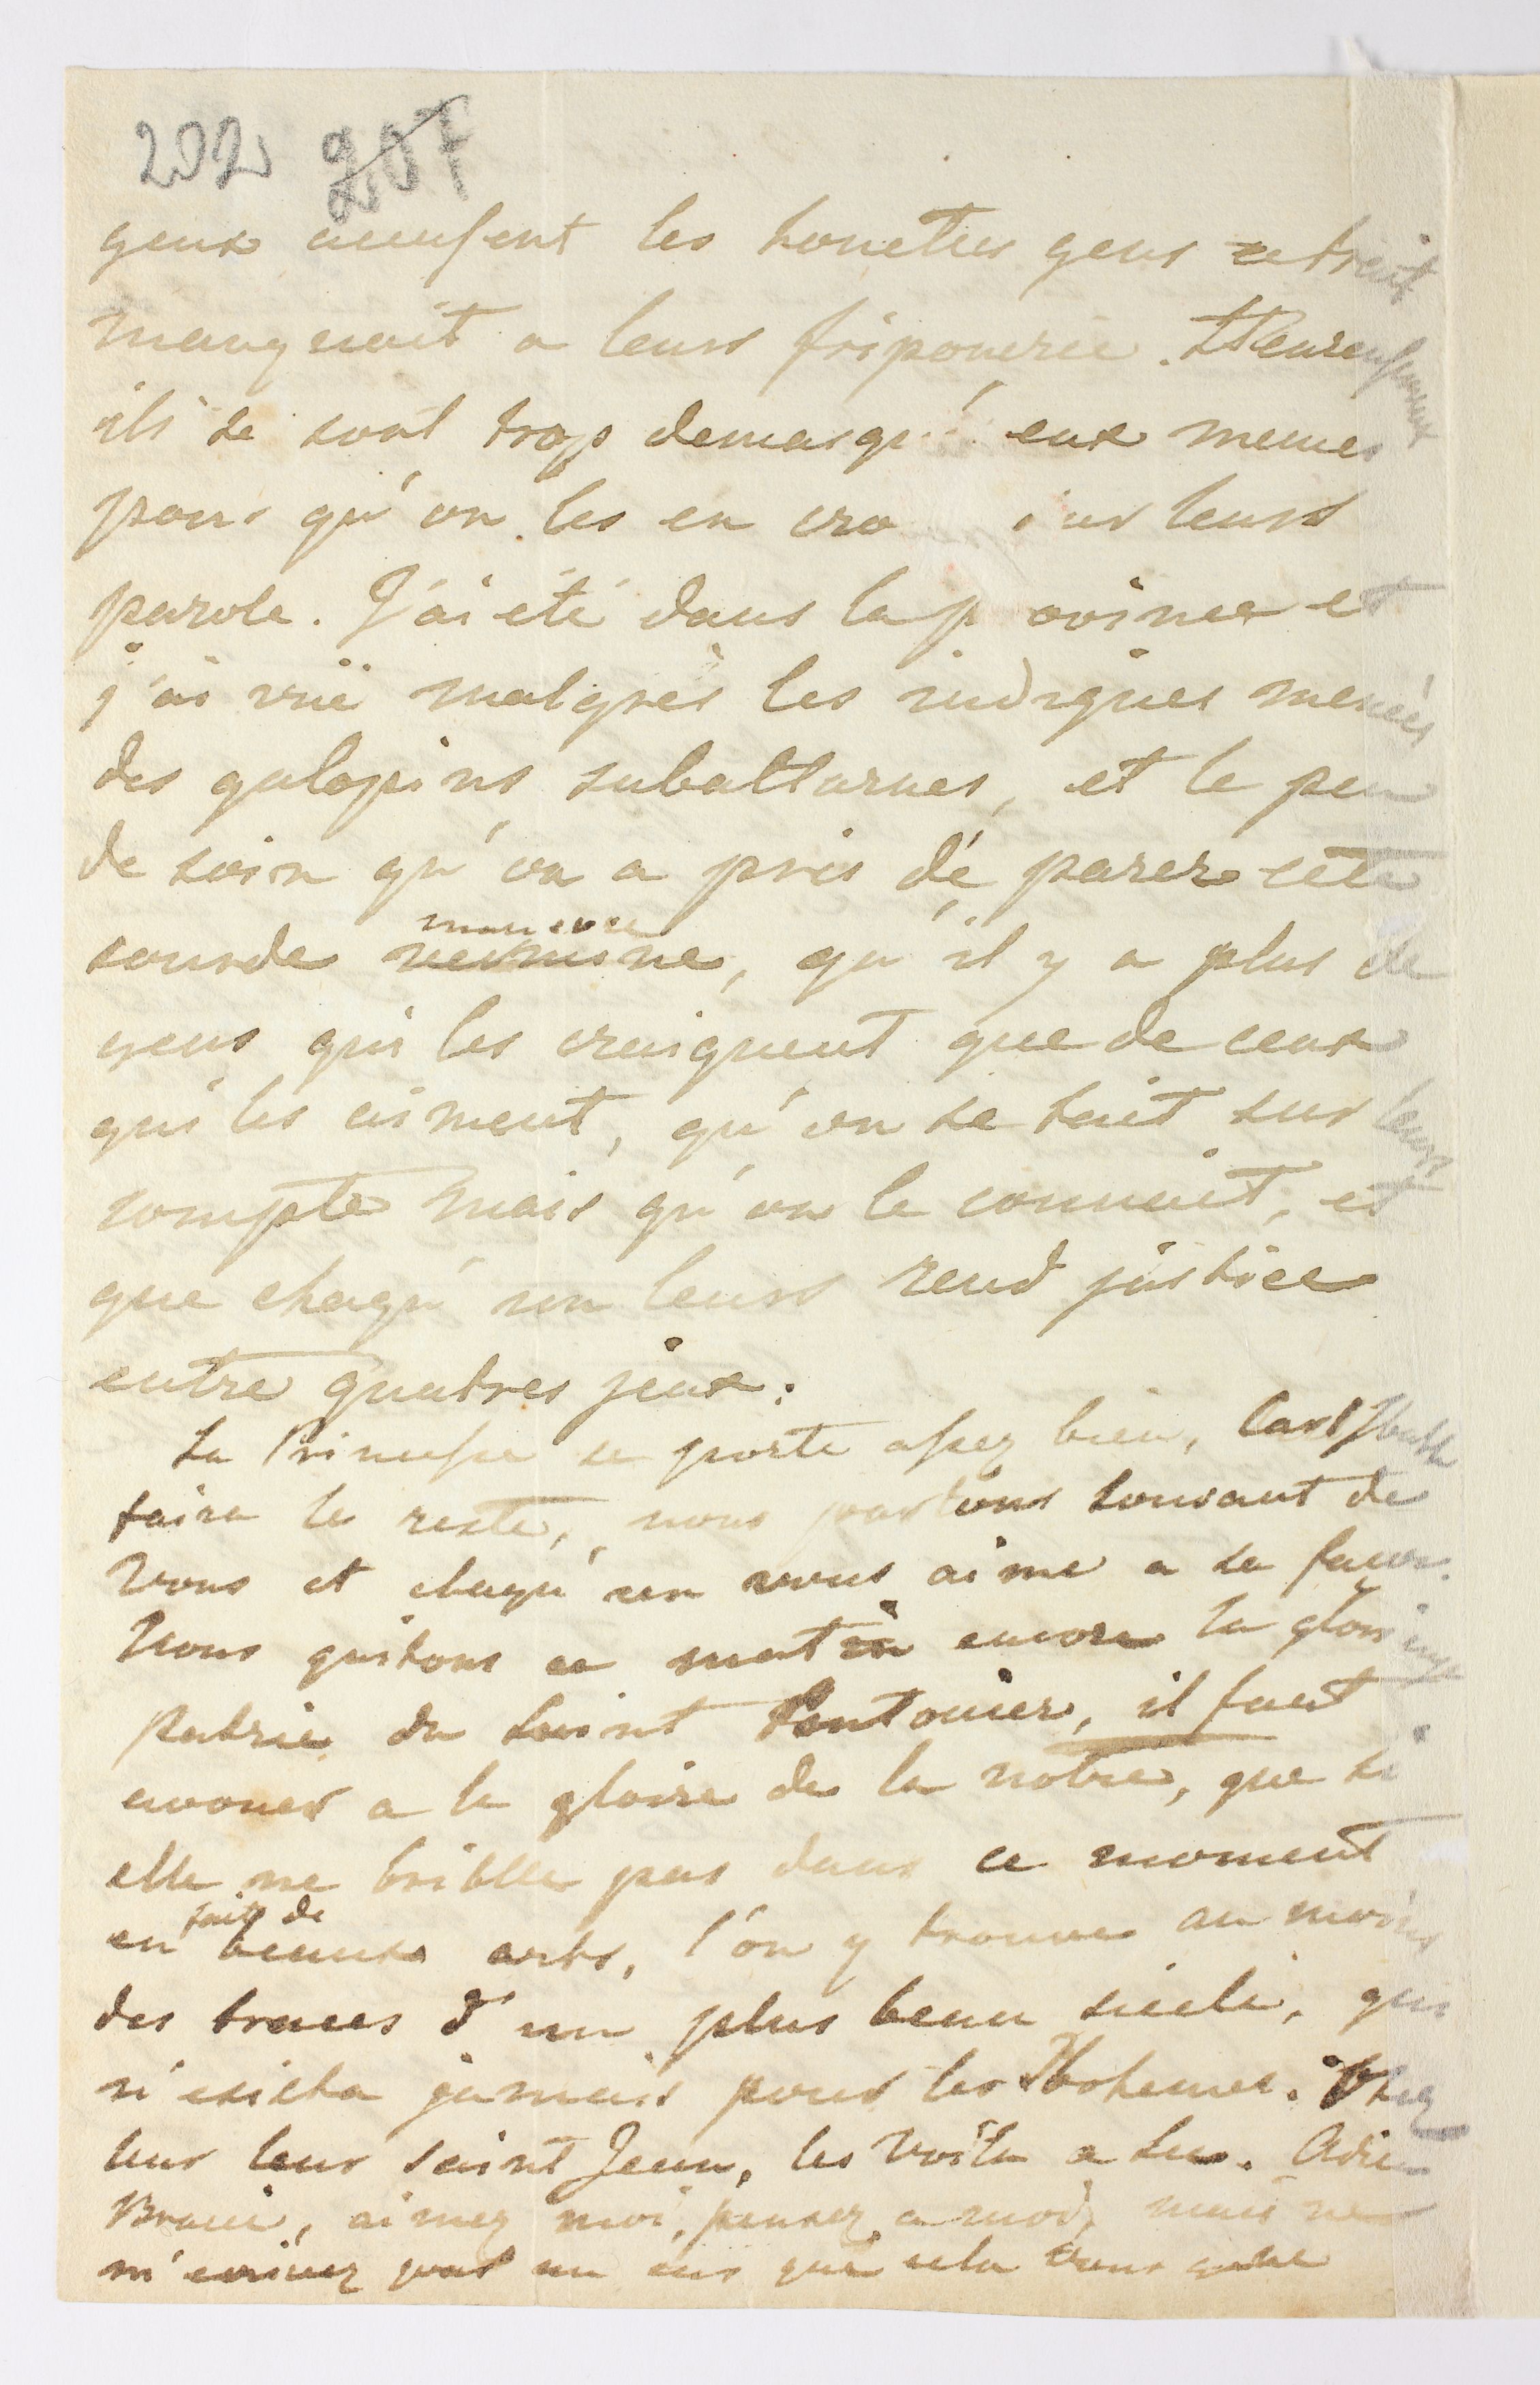 202 207
geux accusent les honettes gens ce trait
manquait a leurs friponerie. Heureusement
ils se sont trop demasqué eux memes
pour qu'on les en cro sur leurs
parole. J'ai été dans la p ovince et
j'ai vüe malgrès les indignes menées
des galopins subalternes, et le peu
de soin qu'on a pris dé parer cette
manevre
sourde, qu'il y a plus de
gens qui les craignent que de ceux
qui les aiment, qu'on se tait sur leurs
compte mais qu'on le connait, et
que chaqu'un leurs rend justice
entre quatres jeux.
La Princesse se porte assez bien, Carlsbath
faira le reste, nous parlons souvant de
vous et chaqu'un vous aime a sa facon.
Nous quitons ce matin encore la glorieuse
patrie du saint Pontonier, il faut
avouer a la gloire de la notre, que si
elle ne brille pas dans ce moment
fait de
en beaux arts, l'on y trouve au moins
des traces d'un plus beau siecle, qui
n'exista jamais pour les Bohemes. Otez
leur leur saint Jean, les voila a sec. Adieu
aimez moi, pensez a moi, mais ne
m'ecrivez pas en cas que cela vous gene